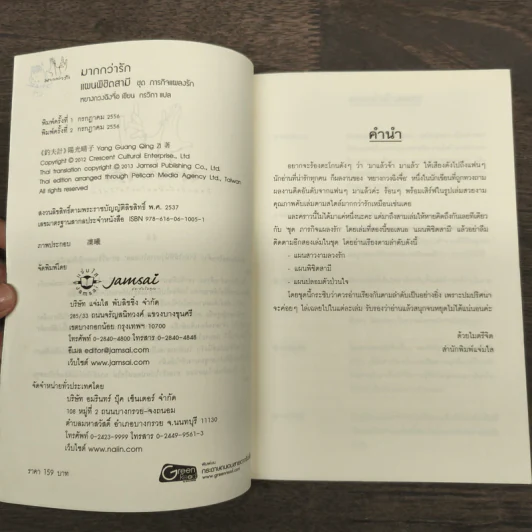 มากกว่ารัก
แผนพิชิตสามี ชุด ภารกิจแผลงรัก
หยางกวงฉิงจื่อ เขียน กรวิกา แปล
พิมพ์ครั้งที่ 1 กรกฎาคม 2556
พิมพ์ครั้งที่ 2 กรกฎาคม 2556
《釣夫計》陽光晴子 Yang Guang Qing Zi 著
Copyright © 2012 Crescent Cultural Enterprise., Ltd
Thai translation copyright © 2013 Jamsai Publishing Co., Ltd.
Thai edition arranged through Pelican Media Agency Ltd., Taiwan
All rights reserved
สงวนลิขสิทธิ์ตามพระราชบัญญัติลิขสิทธิ์ พ.ศ. 2537
เลขมาตรฐานสากลประจำหนังสือ ISBN 978-616-06-1005-1
ภาพประกอบ
จัดพิมพ์โดย
jamsai
บริษัท แจ่มใส พับลิชชิ่ง จำกัด
285/33 ถนนจรัญสนิทวงศ์ แขวงบางขุนศรี
เขตบางกอกน้อย กรุงเทพฯ 10700
โทรศัพท์ 0-2840-4800 โทรสาร 0-2840-4848
อีเมล editor@jamsai.com
เว็บไซต์ www.jamsai.com
จัดจำหน่ายทั่วประเทศโดย
บริษัท อมรินทร์ บุ๊ค เซ็นเตอร์ จำกัด
108 หมู่ที่ 2 ถนนบางกรวย-จงถนอม
ตำบลมหาสวัสดิ์ อำเภอบางกรวย จ.นนทบุรี 11130
โทรศัพท์ 0-2423-9999 โทรสาร 0-2449-9561-3
เว็บไซต์ www.naiin.com
ราคา 159 บาท
Green Read
www.greenread.com
คำนำ
อยากจะร้องตะโกนดังๆ ว่า มาแล้วจ้า มาแล้ว ให้เสียงดังไปถึงแฟนๆ
นักอ่านที่น่ารักทุกคน กับผลงานของ 'หยางกวงฉิงจื่อ' หนึ่งในนักเขียนที่
ผลงานติดอันดับจากแฟนๆ มาแล้วค่ะ ร้อนๆ พร้อมเสิร์ฟในรูปเล่มสวยงาม
คุณภาพคับเล่มตามสไตล์มากกว่ารักเหมือนเช่นเคย
และคราวนี้ไม่ได้มาแค่หนึ่งนะคะ
กับ ชุด ภารกิจแผลงรัก โดยเล่มที่สองนี้ขอเสนอ 'แผนพิชิตสามี' แล้วอย่าลืม
ติดตามอีกสองเล่มในชุด โดยอ่านเรียงตามลำดับดังนี้
- แผนสาวงามลวงรัก
- แผนพิชิตสามี
- แผนปลอมตัวป่วนใจ
โดยชุดนี้กระซิบว่าควรอ่านเรียงกันตามลำดับเป็นอย่างยิ่ง เพราะปมปริศนา
จะค่อยๆ ไล่เฉลยไปในแต่ละเล่ม รับรองว่าอ่านแล้วสนุกจนหยุดไม่ได้แน่นอนค่ะ
ด้วยไมตรีจิต
สำนักพิมพ์แจ่มใส